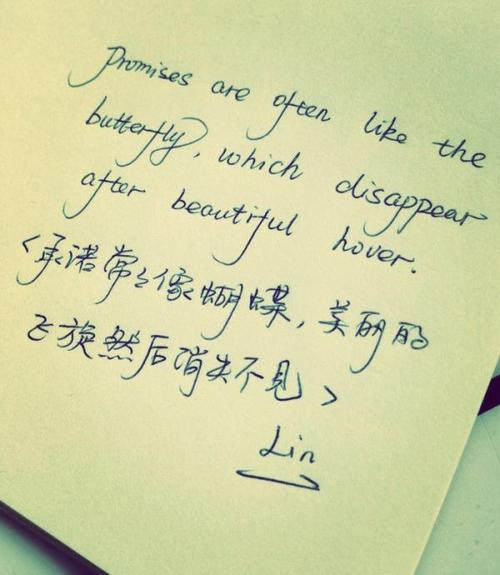 Promises are often like the
butterfly, which disappear
after beautiful hover.
<承诺常々像蝴蝶,美丽的
飞旋然后消失不见>
Lin